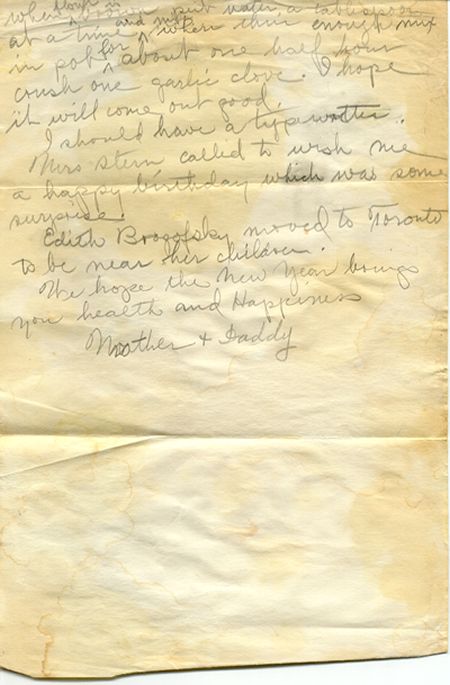 when flour is brown put water a tablespoon
at a time and mix when thin enough mix
in pot for about one half hour
crush one garlic clove. I hope
it will come out good.
I should have a typewriter.
Mrs Stern called to wish me
a happy birthday which was some
surprise.
Edith Brogofsky moved to Toronto
to be near her children.
We hope the New Year brings
you health and Happiness
Mother + Daddy